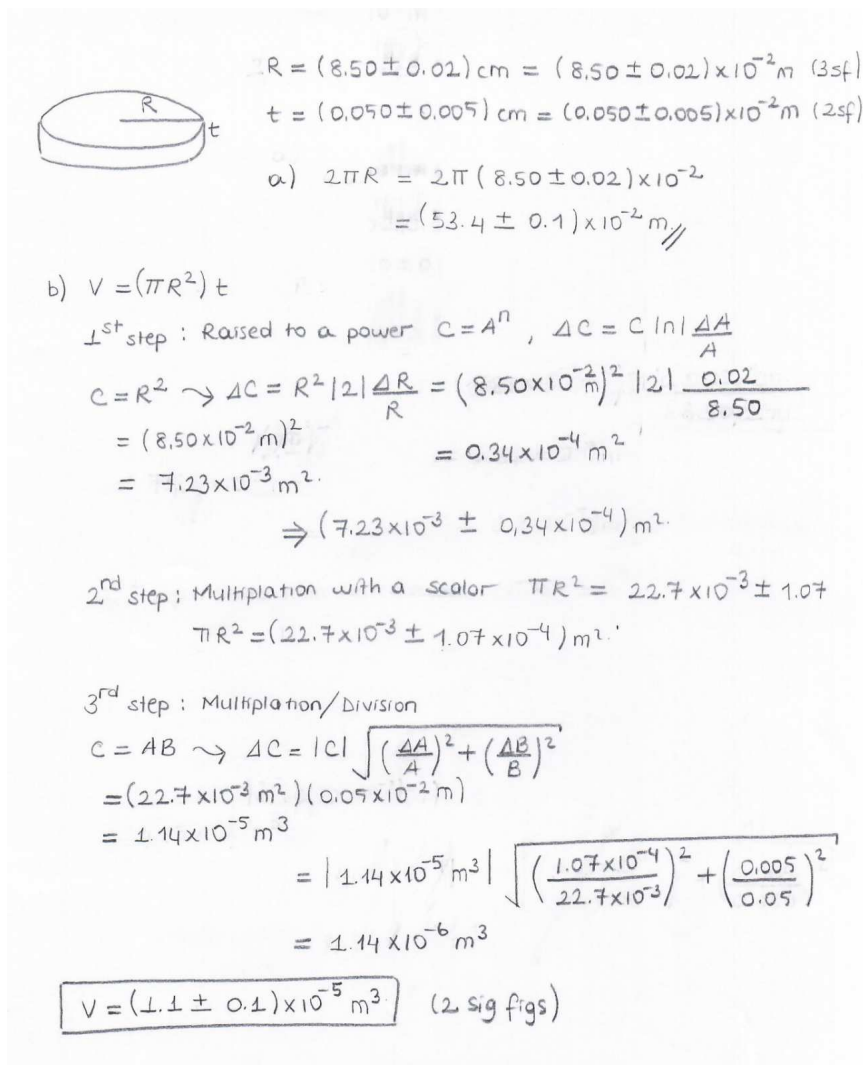 R = (8.50 ± 0.02) cm = (8.50 ± 0.02) x 10⁻² m (3sf)
R
t
t = (0.050 ± 0.005) cm = (0.050 ± 0.005) x 10⁻² m (2sf)
a) 2πR = 2π (8.50 ± 0.02) x 10⁻²
= (53.4 ± 0.1) x 10⁻² m //
b) V = (πR²) t
1st step : Raised to a power C = Aⁿ , ΔC = C |n| ΔA/A
C = R² ⤳ ΔC = R² |2| ΔR/R = (8.50x10⁻² m)² |2| 0.02/8.50
= (8,50 x 10⁻² m)² = 0.34 x 10⁻⁴ m²
= 7.23 x 10⁻³ m².
⇒ (7.23x10⁻³ ± 0,34x10⁻⁴) m².
2nd step : Multiplation with a scalar πR² = 22.7 x 10⁻³ ± 1.07
πR² = (22.7x10⁻³ ± 1.07 x10⁻⁴) m².
3rd step : Multiplation/Division
C = AB ⤳ ΔC = |C| √((ΔA/A)² + (ΔB/B)²)
= (22.7 x10⁻³ m²) (0.05 x 10⁻² m)
= 1.14x10⁻⁵ m³
= | 1.14 x10⁻⁵ m³ | √((1.07x10⁻⁴/22.7x10⁻³)² + (0.005/0.05)²)
= 1.14 x 10⁻⁶ m³
V = (1.1 ± 0.1) x 10⁻⁵ m³. (2 sig figs)